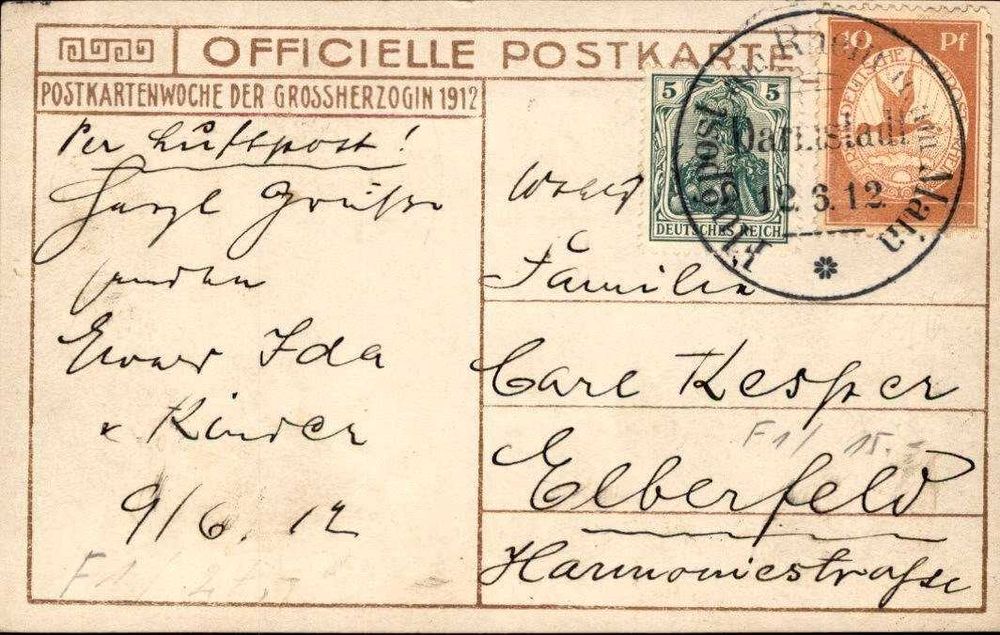 OFFICIELLE POSTKARTE
POSTKARTENWOCHE DER GROSSHERZOGIN 1912
Per Luftpost!
Herzl Grüße
senden
Ewald Ida
u Kinder
9/6. 12
5 5
DEUTSCHES REICH
10 Pf
Flugpost am Rhein u. am Main
Darmstadt
12.6.12
Familie
Carl Kesper
Elberfeld
Harmoniestraße
F1/ 15.-